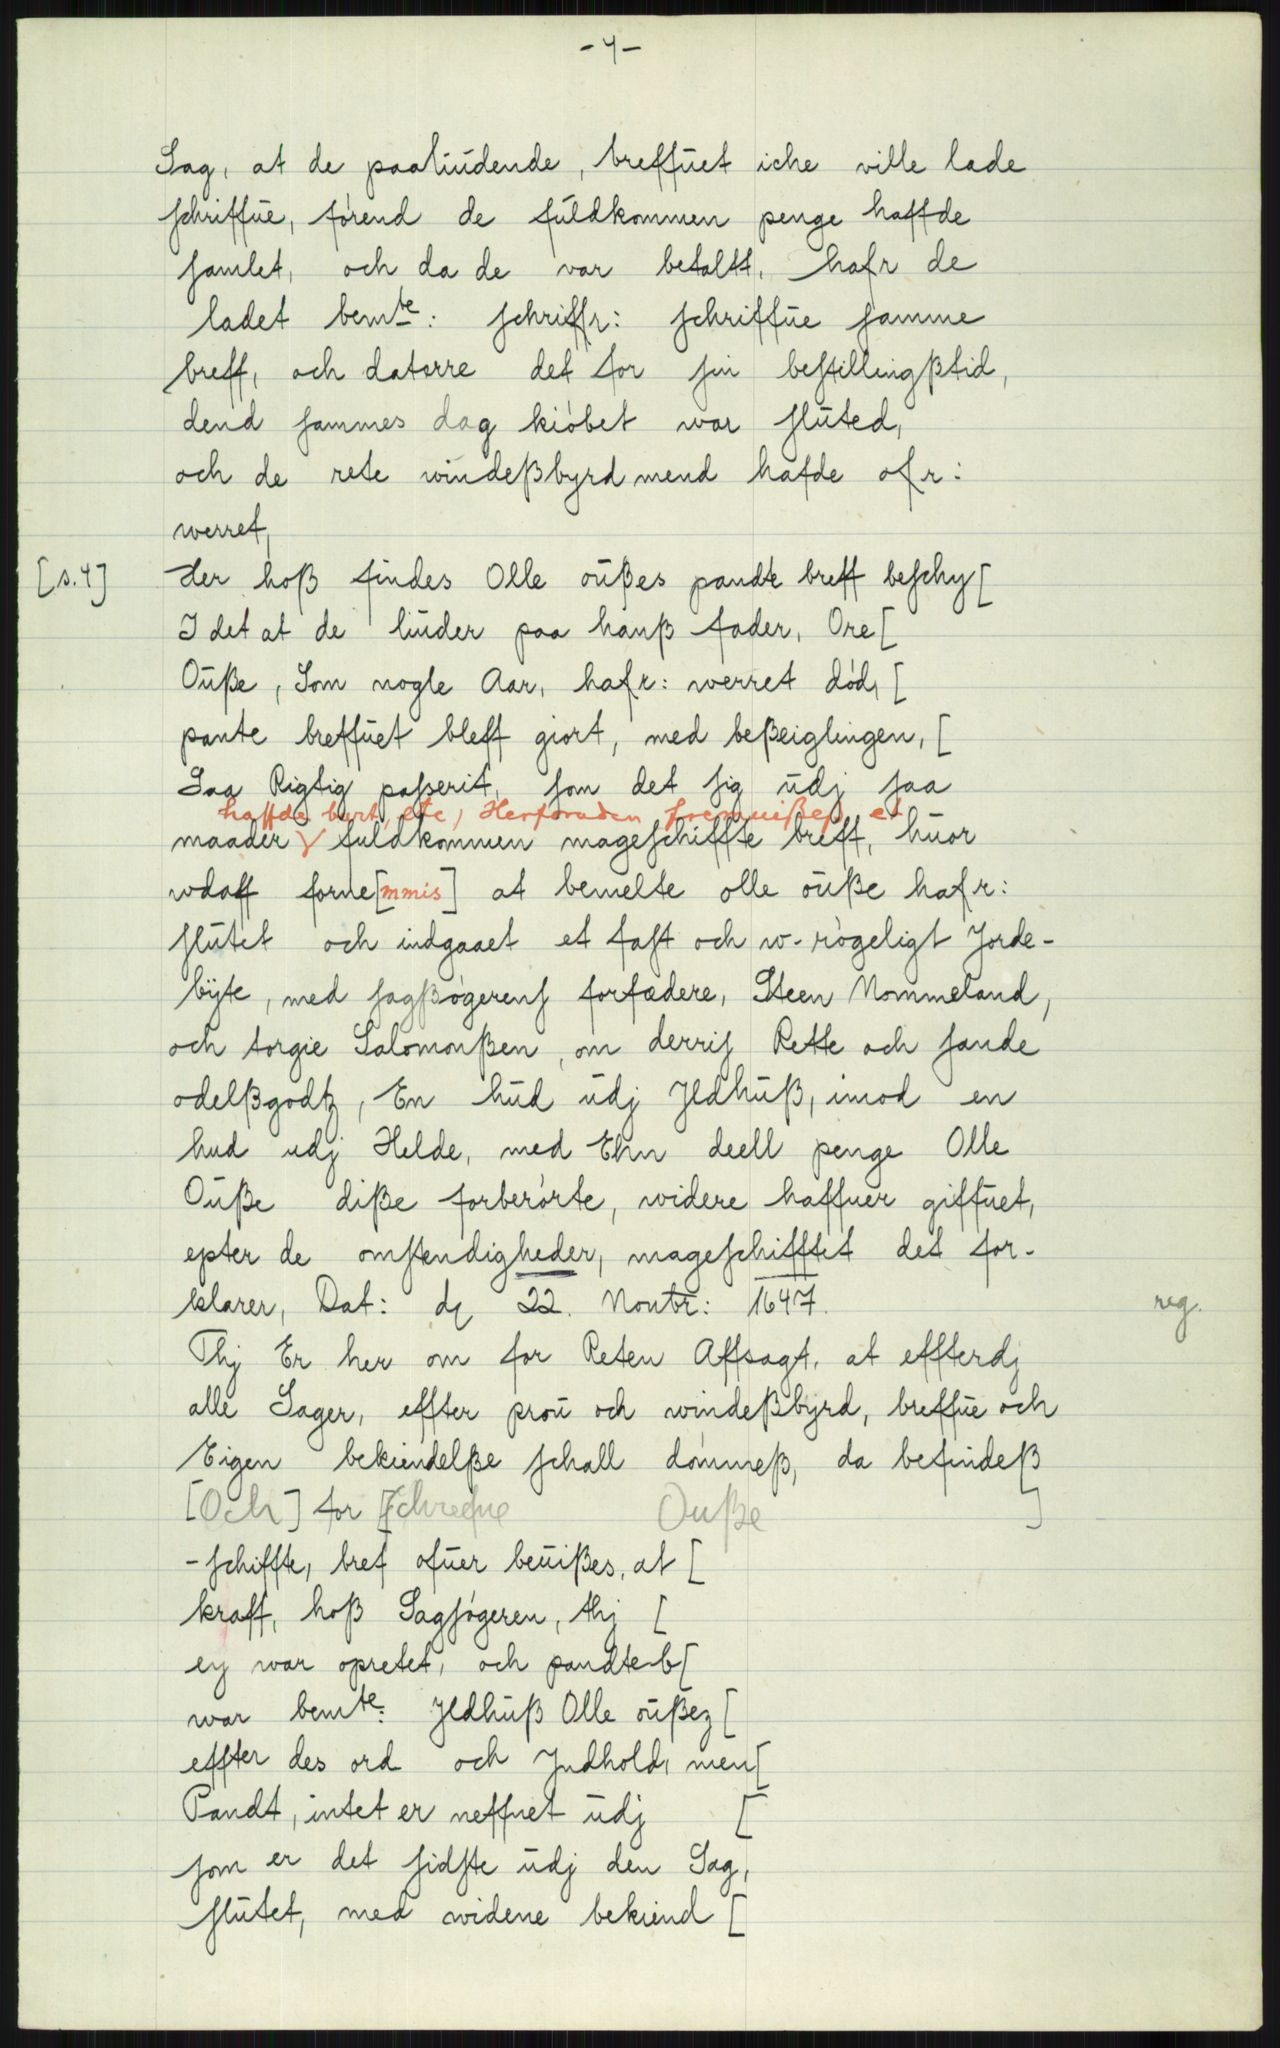 -4-
Sag, at de paaliudende, breffuet iche ville lade
schriffue, førend de fuldkommen penge haffde
samlet, och da de var betaltt, hafr de
ladet bemte: schriffr: schriffue samme
breff, och daterre det for sin bestillingßtid,
dend sammes dag kiøbet war sluted,
och de rete windeßbyrd mend hafde ofr:
werret,
[s.4] der hoß findes Olle oußes pandte breff beschy[
I det at de liuder paa hanß fader, Ore[
Ouße, Som nogle Aar, hafr: werret død, [
pante breffuet bleff giort, med beßeiglingen, [
Saa Rigtig passerit, som det sig udj saa
haffde burt, etc, Herforuden fremuißes et
maader fuldkommen mageschiffte breff, huor
wdaff forne[mmis] at bemelte olle ouße hafr:
slutet och indgaaet et fast och w-røgeligt Jorde-
byte, med sagßøgerens forfædere, Steen Mommeland,
och torgie Salomonßen, om derris Rette och sande
odelßgodtz, En hud udj Jldhuß, imod en
hud udj Helde, med Ehn deell penge Olle
Ouße diße forberørte, widere haffuer giffuet,
epter de omstendigheder, mageschifftet det for-
klarer, Dat: d. 22. Noutr: 1647. reg.
Thj Er her om for Reten Affsagt, at effterdj
alle Sager, effter prou och windeßbyrd, breffue och
Eigen bekiendelße schall dømmeß, da befindeß
[Och] for [schrefne Ouße ]
-schiffte, bref ofuer beuißes, at [
kraft, hoß Sagsøgeren, thj [
ey war opretet, och pandte b[
war bemte: Jldhuß Olle oußez [
effter des ord och Jndhold, men[
Pandt, intet er neffnet udj [
som er det sidste udj den Sag,
slutet, med widene bekiend [